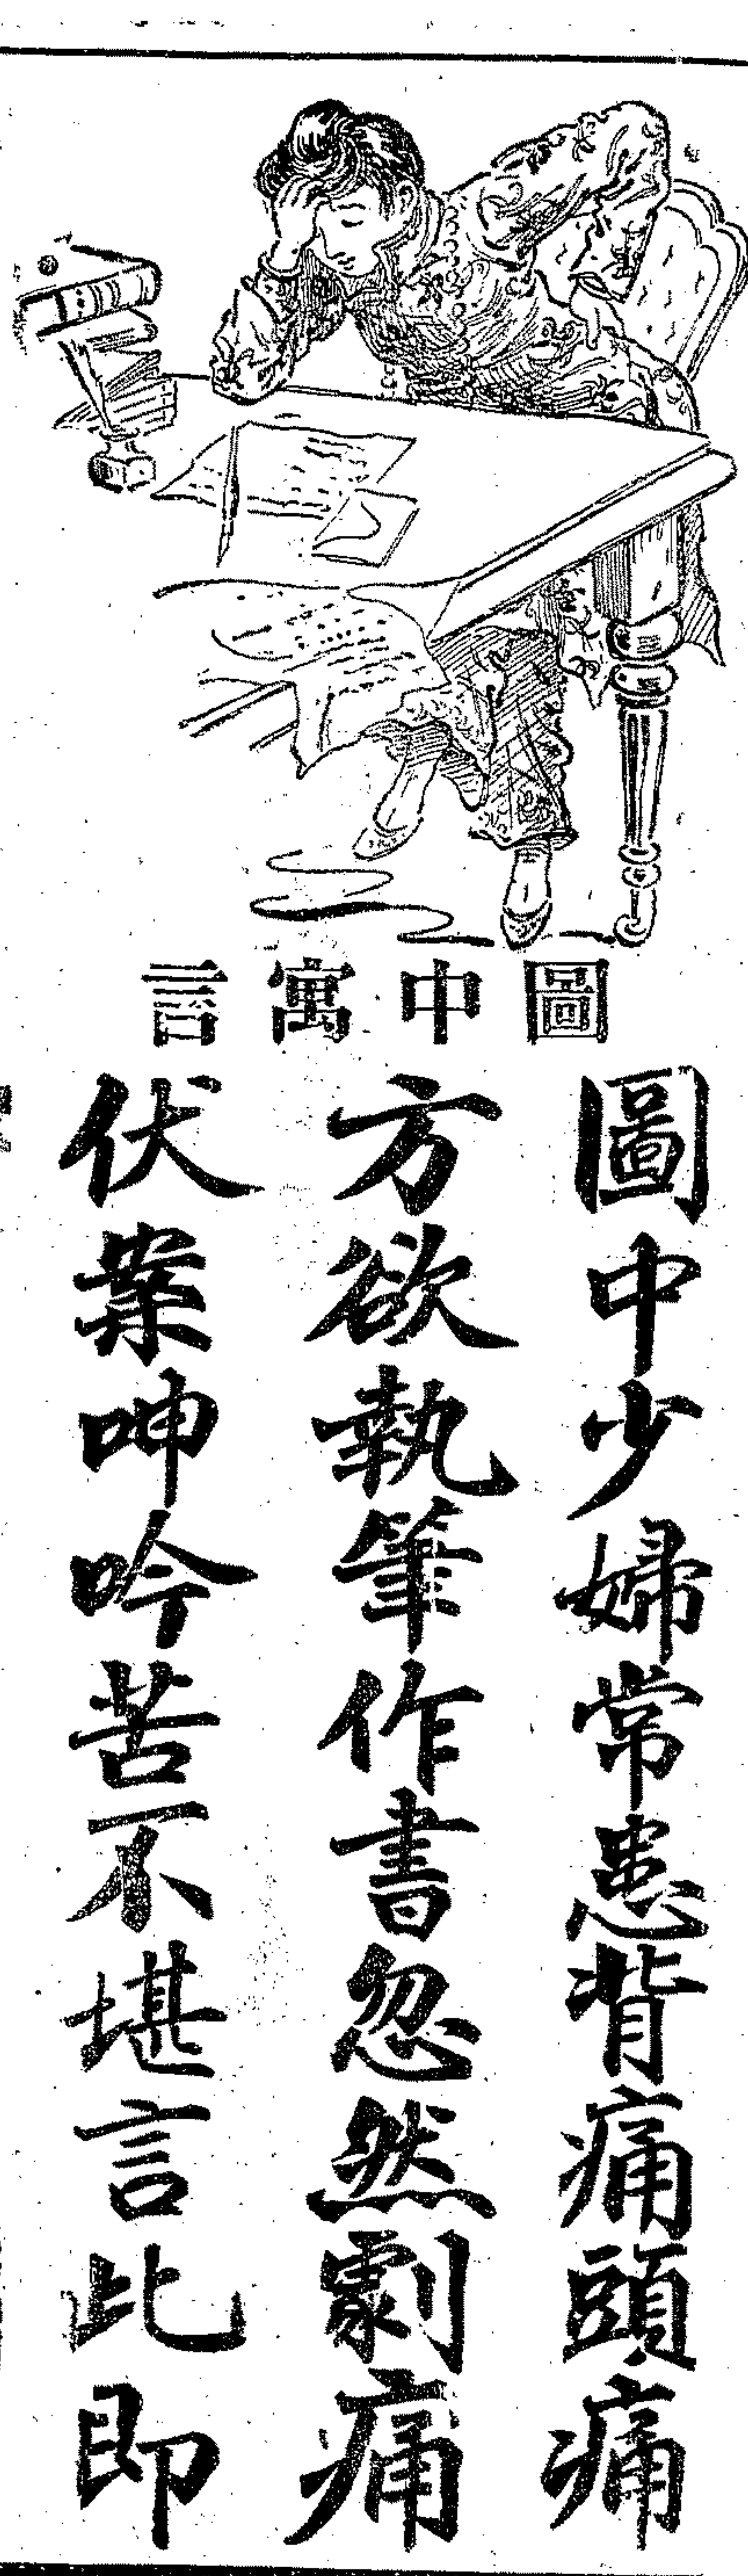 圖中寓言
圖中少婦常患背痛頭痛
方欲執筆作書忽然劇痛
伏案呻吟苦不堪言此即